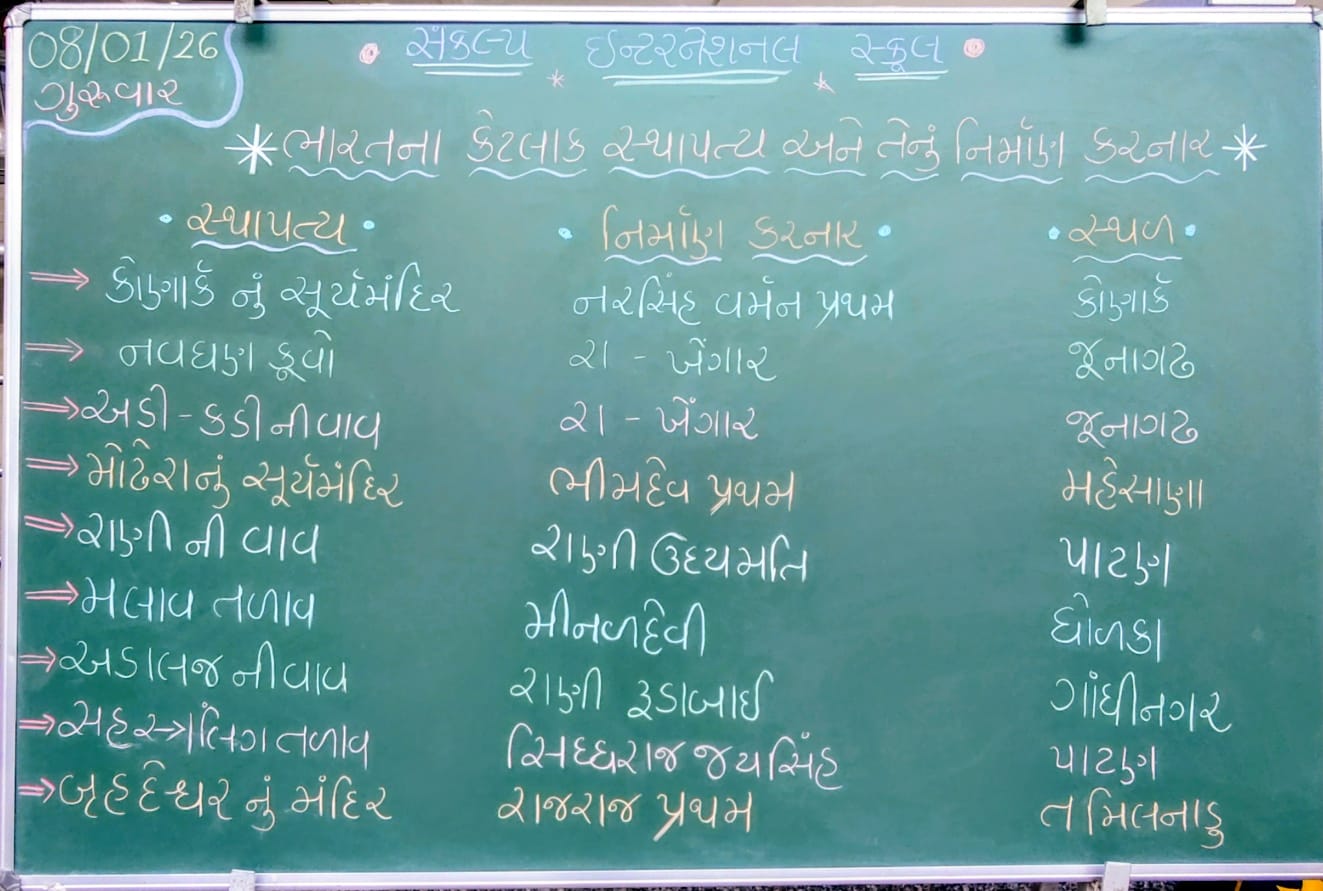 08/01/26
ગુરુવાર
સંકલ્પ ઇન્ટરનેશનલ સ્કૂલ
* ભારતના કેટલાક સ્થાપત્ય અને તેનું નિર્માણ કરનાર *
• સ્થાપત્ય • • નિર્માણ કરનાર • • સ્થળ •
⇒ કોણાર્ક નું સૂર્યમંદિર નરસિંહ વર્મન પ્રથમ કોણાર્ક
⇒ નવઘણ કૂવો રા - ખેંગાર જૂનાગઢ
⇒ અડી - કડી ની વાવ રા - ખેંગાર જૂનાગઢ
⇒ મોઢેરાનું સૂર્યમંદિર ભીમદેવ પ્રથમ મહેસાણા
⇒ રાણી ની વાવ રાણી ઉદયમતિ પાટણ
⇒ મલાવ તળાવ મીનળદેવી ધોળકા
⇒ અડાલજ ની વાવ રાણી રૂડાબાઈ ગાંધીનગર
⇒ સહસ્ત્રલિંગ તળાવ સિધ્ધરાજ જયસિંહ પાટણ
⇒ બૃહદેશ્વર નું મંદિર રાજરાજ પ્રથમ તમિલનાડુ